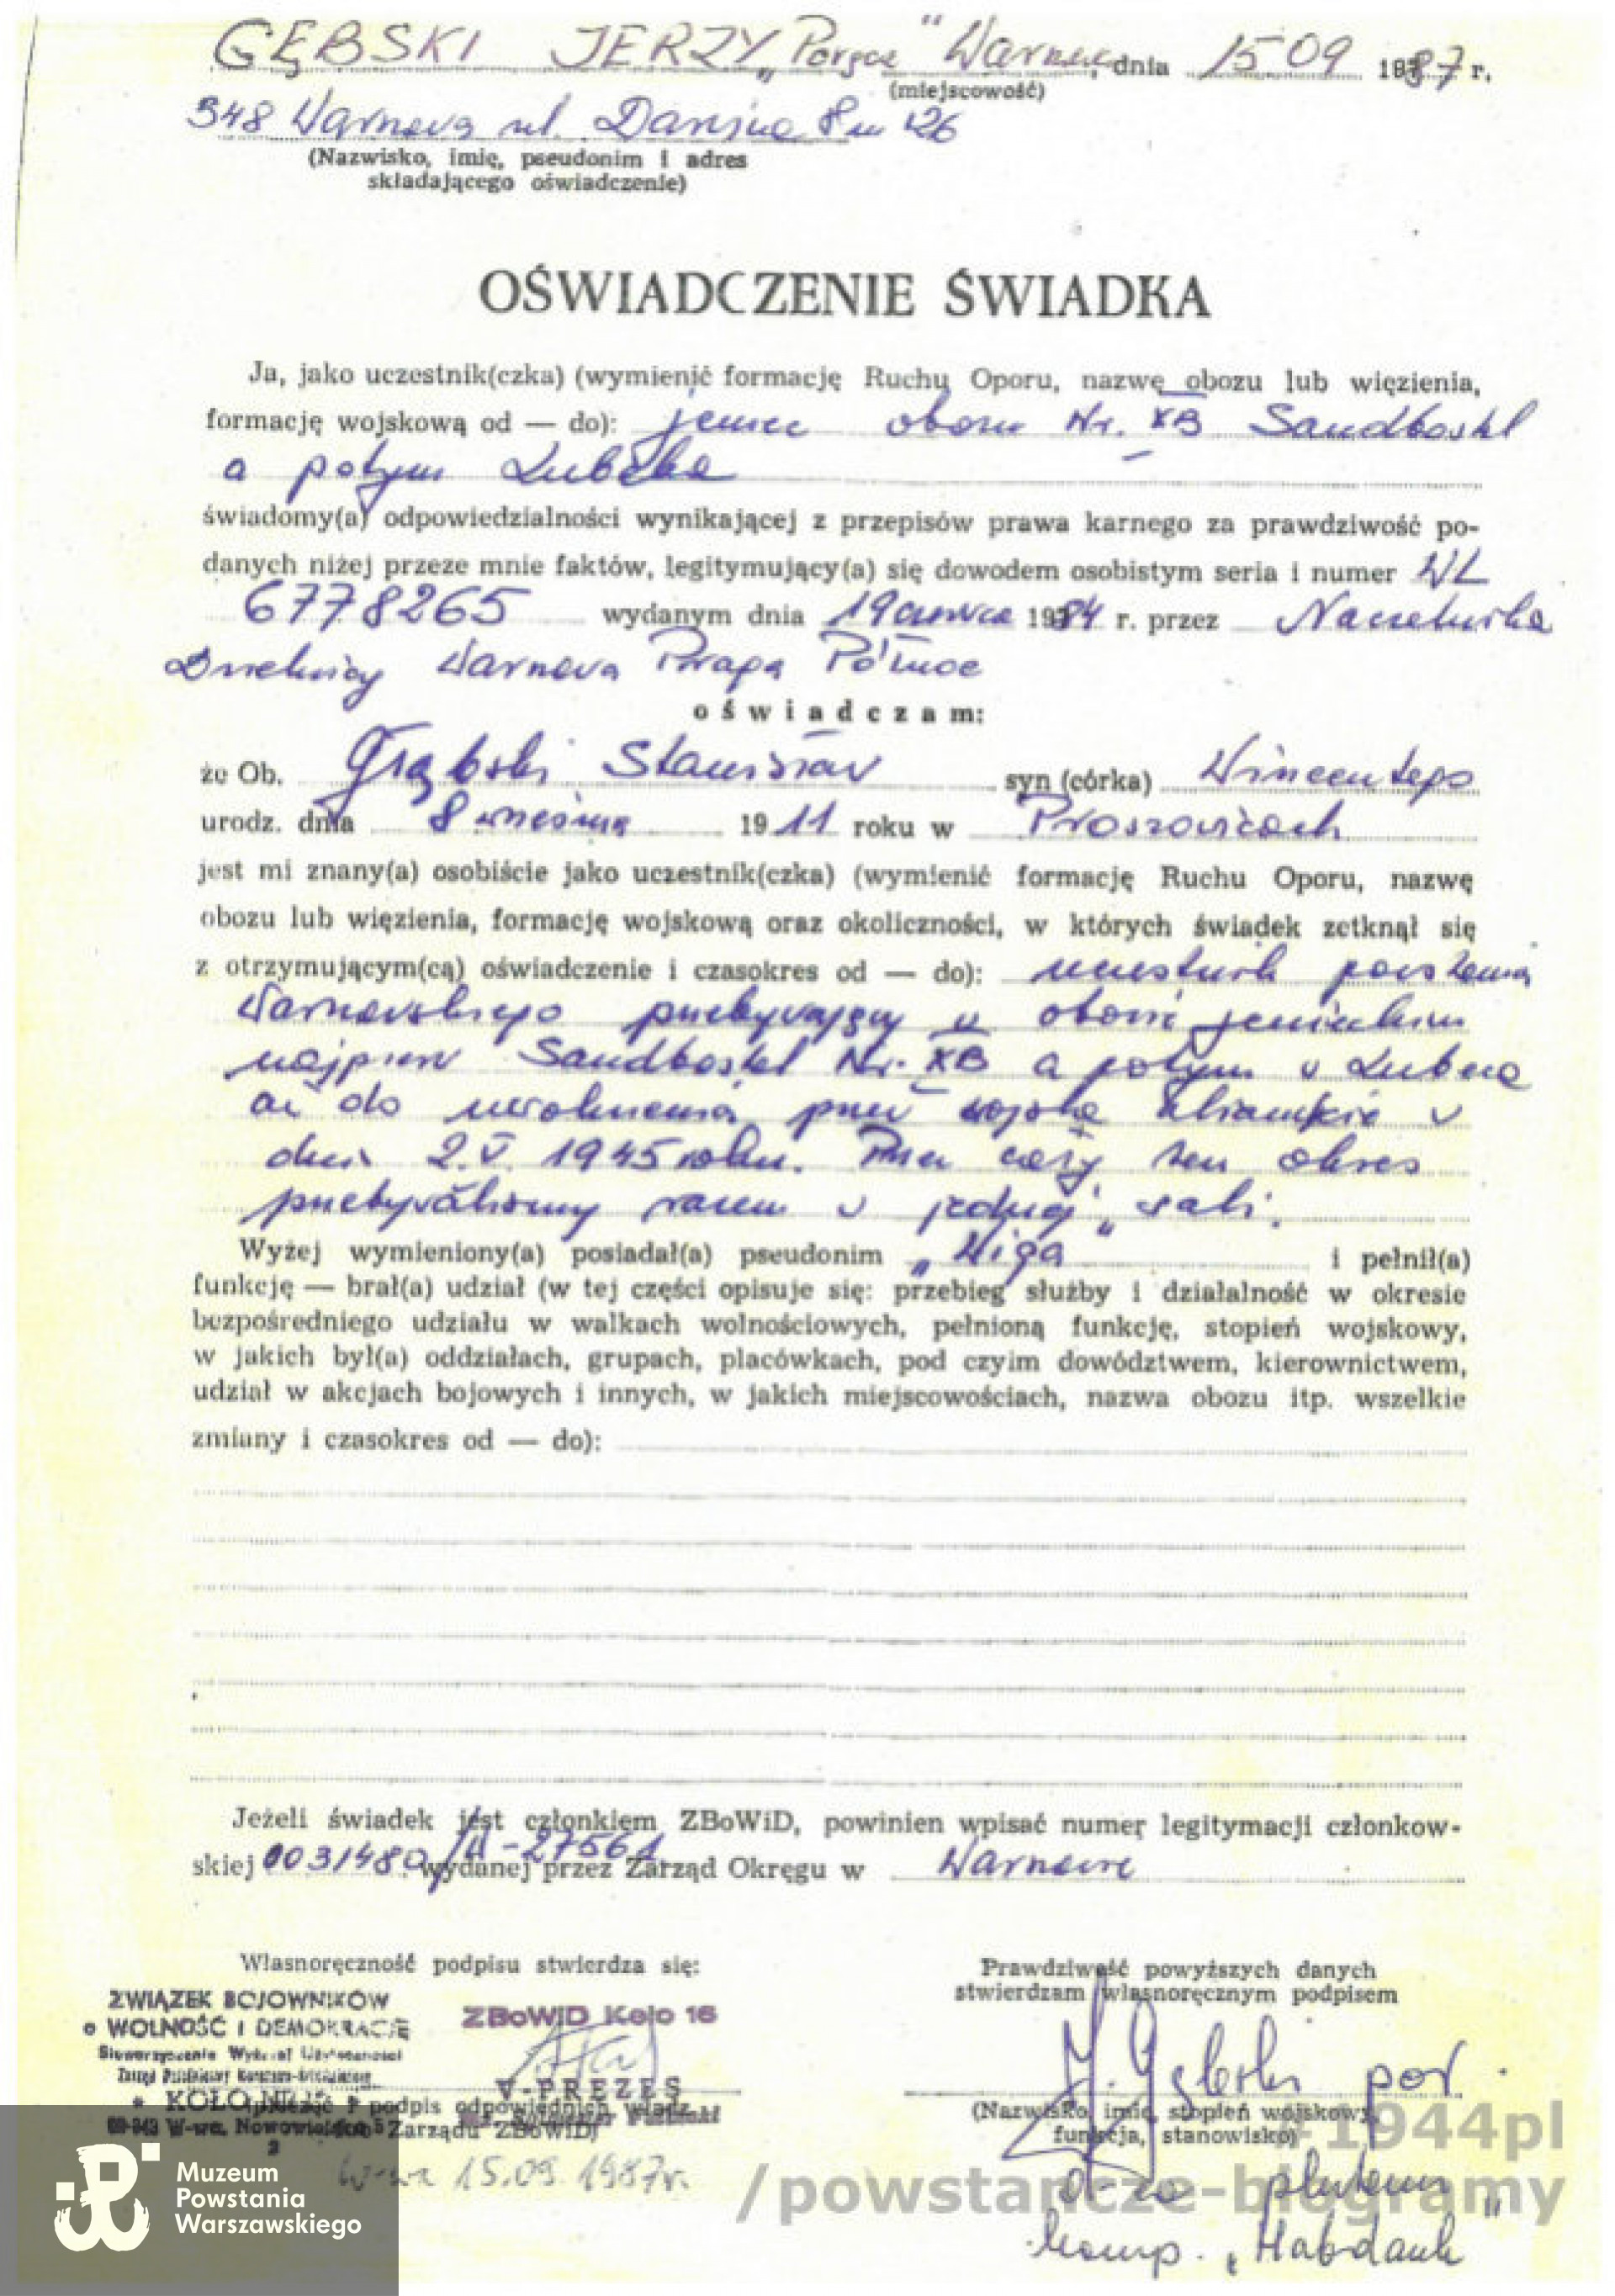 GĘBSKI JERZY „Porycz” Warszawa, dnia 15 09 1987 r.
(miejscowość)
348 Warszawa ul. Darsina 8 m 126
(Nazwisko, imię, pseudonim i adres
składającego oświadczenie)
OŚWIADCZENIE ŚWIADKA
Ja, jako uczestnik(czka) (wymienić formację Ruchu Oporu, nazwę obozu lub więzienia,
formację wojskową od — do): jeniec obozu Nr. XB Sandbostel
a potym Lubeka
świadomy(a) odpowiedzialności wynikającej z przepisów prawa karnego za prawdziwość po-
danych niżej przeze mnie faktów, legitymujący(a) się dowodem osobistym seria i numer WL
6778265 wydanym dnia 19 czerwca 1984 r. przez Naczelnika
Dzielnicy Warszawa Praga Północ
oświadczam:
że Ob. Grąbski Stanisław syn (córka) Wincentego
urodz. dnia 8 września 1911 roku w Proszowicach
jest mi znany(a) osobiście jako uczestnik(czka) (wymienić formację Ruchu Oporu, nazwę
obozu lub więzienia, formację wojskową oraz okoliczności, w których świadek zetknął się
z otrzymującym(cą) oświadczenie i czasokres od — do): uczestnik powstania
Warszawskiego przebywający w obozie jenieckim
najpierw Sandbostel Nr. XB a potym w Lubece
aż do uwolnienia przez wojska Alianckie w
dniu 2.V. 1945 roku. Przez cały ten okres
przebywaliśmy razem w jednej sali.
Wyżej wymieniony(a) posiadał(a) pseudonim „Wiga” i pełnił(a)
funkcję — brał(a) udział (w tej części opisuje się: przebieg służby i działalność w okresie
bezpośredniego udziału w walkach wolnościowych, pełnioną funkcję, stopień wojskowy,
w jakich był(a) oddziałach, grupach, placówkach, pod czyim dowództwem, kierownictwem,
udział w akcjach bojowych i innych, w jakich miejscowościach, nazwa obozu itp. wszelkie
zmiany i czasokres od — do):
Jeżeli świadek jest członkiem ZBoWiD, powinien wpisać numer legitymacji członkow-
skiej 0031480/A-27561 wydanej przez Zarząd Okręgu w Warszawie
Własnoręczność podpisu stwierdza się:
Prawdziwość powyższych danych
stwierdzam własnoręcznym podpisem
ZWIĄZEK BOJOWNIKÓW
o WOLNOŚĆ i DEMOKRACJĘ
Stowarzyszenie Wyższej Użyteczności
ZBoWiD Koło 16
V-PREZES
J. Gębski por.
(pieczęć i podpis odpowiednich władz
Zarządu ZBoWiD)
(Nazwisko, imię, stopień wojskowy,
funkcja, stanowisko)
W-wa, Nowowiejska 5
W-wa 15.09.1987r.
d-ca plutonu
komp. „Habdank”
Muzeum
Powstania
Warszawskiego
1944pl
/powstancze-biogramy